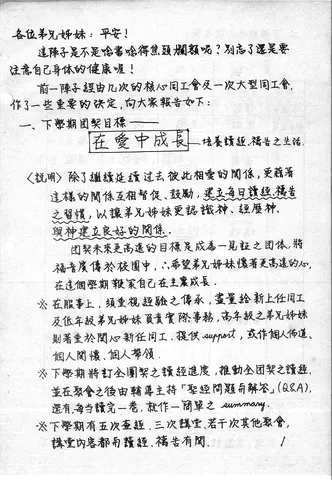 各位弟兄姊妹：平安！
這陣子是不是唸書唸得焦頭爛額呢？別忘了還是要
注意自己身体的健康喔！
前一陣子經由九次的核心同工會及一次大型同工會，
作了一些重要的決定，向大家報告如下：
一、下學期团契目標——
在愛中成長 —培養讀經、禱告之生活.
〈說明〉除了繼續延續过去彼此相愛的關係，更藉著
這樣的關係互相督促、鼓勵，建立每日讀經、禱告
之習慣，以讓弟兄姊妹更認識神、經歷神、
與神建立良好的關係.
团契未來更高遠的目標是成為一見証之团体，將
福音廣傳於校園中，∴希望弟兄姊妹懷着更高遠的心，
在這個學期裡求自己在主裏成長.
※在服事上，須重視經驗之傳承，盡量給新上任同工
及低年級弟兄姊妹負責實際事務，高年級之弟兄姊妹
則著重於關心新任同工，提供 support，或作個人佈道、
個人關懷、個人帶領.
※下學期將訂全團契之讀經進度，推動全团契之讀經，
並在聚會之後由輔導主持「聖經問題有解答」(Q&A)，
還有，每当讀完一卷，就作一簡單之 summary.
※下學期有五次查經、三次講堂、若干次其他聚會，
講堂內容都有讀經、禱告有關.
1